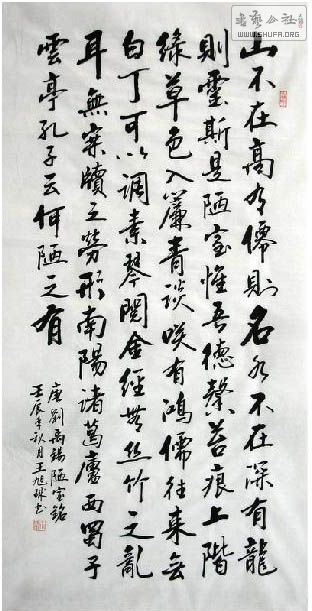 山不在高有僊則名水不在深有龍
則靈斯是陋室惟吾德馨苔痕上階
綠草色入簾青談咲有鴻儒往來無
白丁可以調素琴閱金經無絲竹之亂
耳無案牘之勞形南陽諸葛廬西蜀子
雲亭孔子云何陋之有
唐劉禹錫陋室銘
壬辰年秋月王旭
書藝公社
WWW.SHUFA.ORG